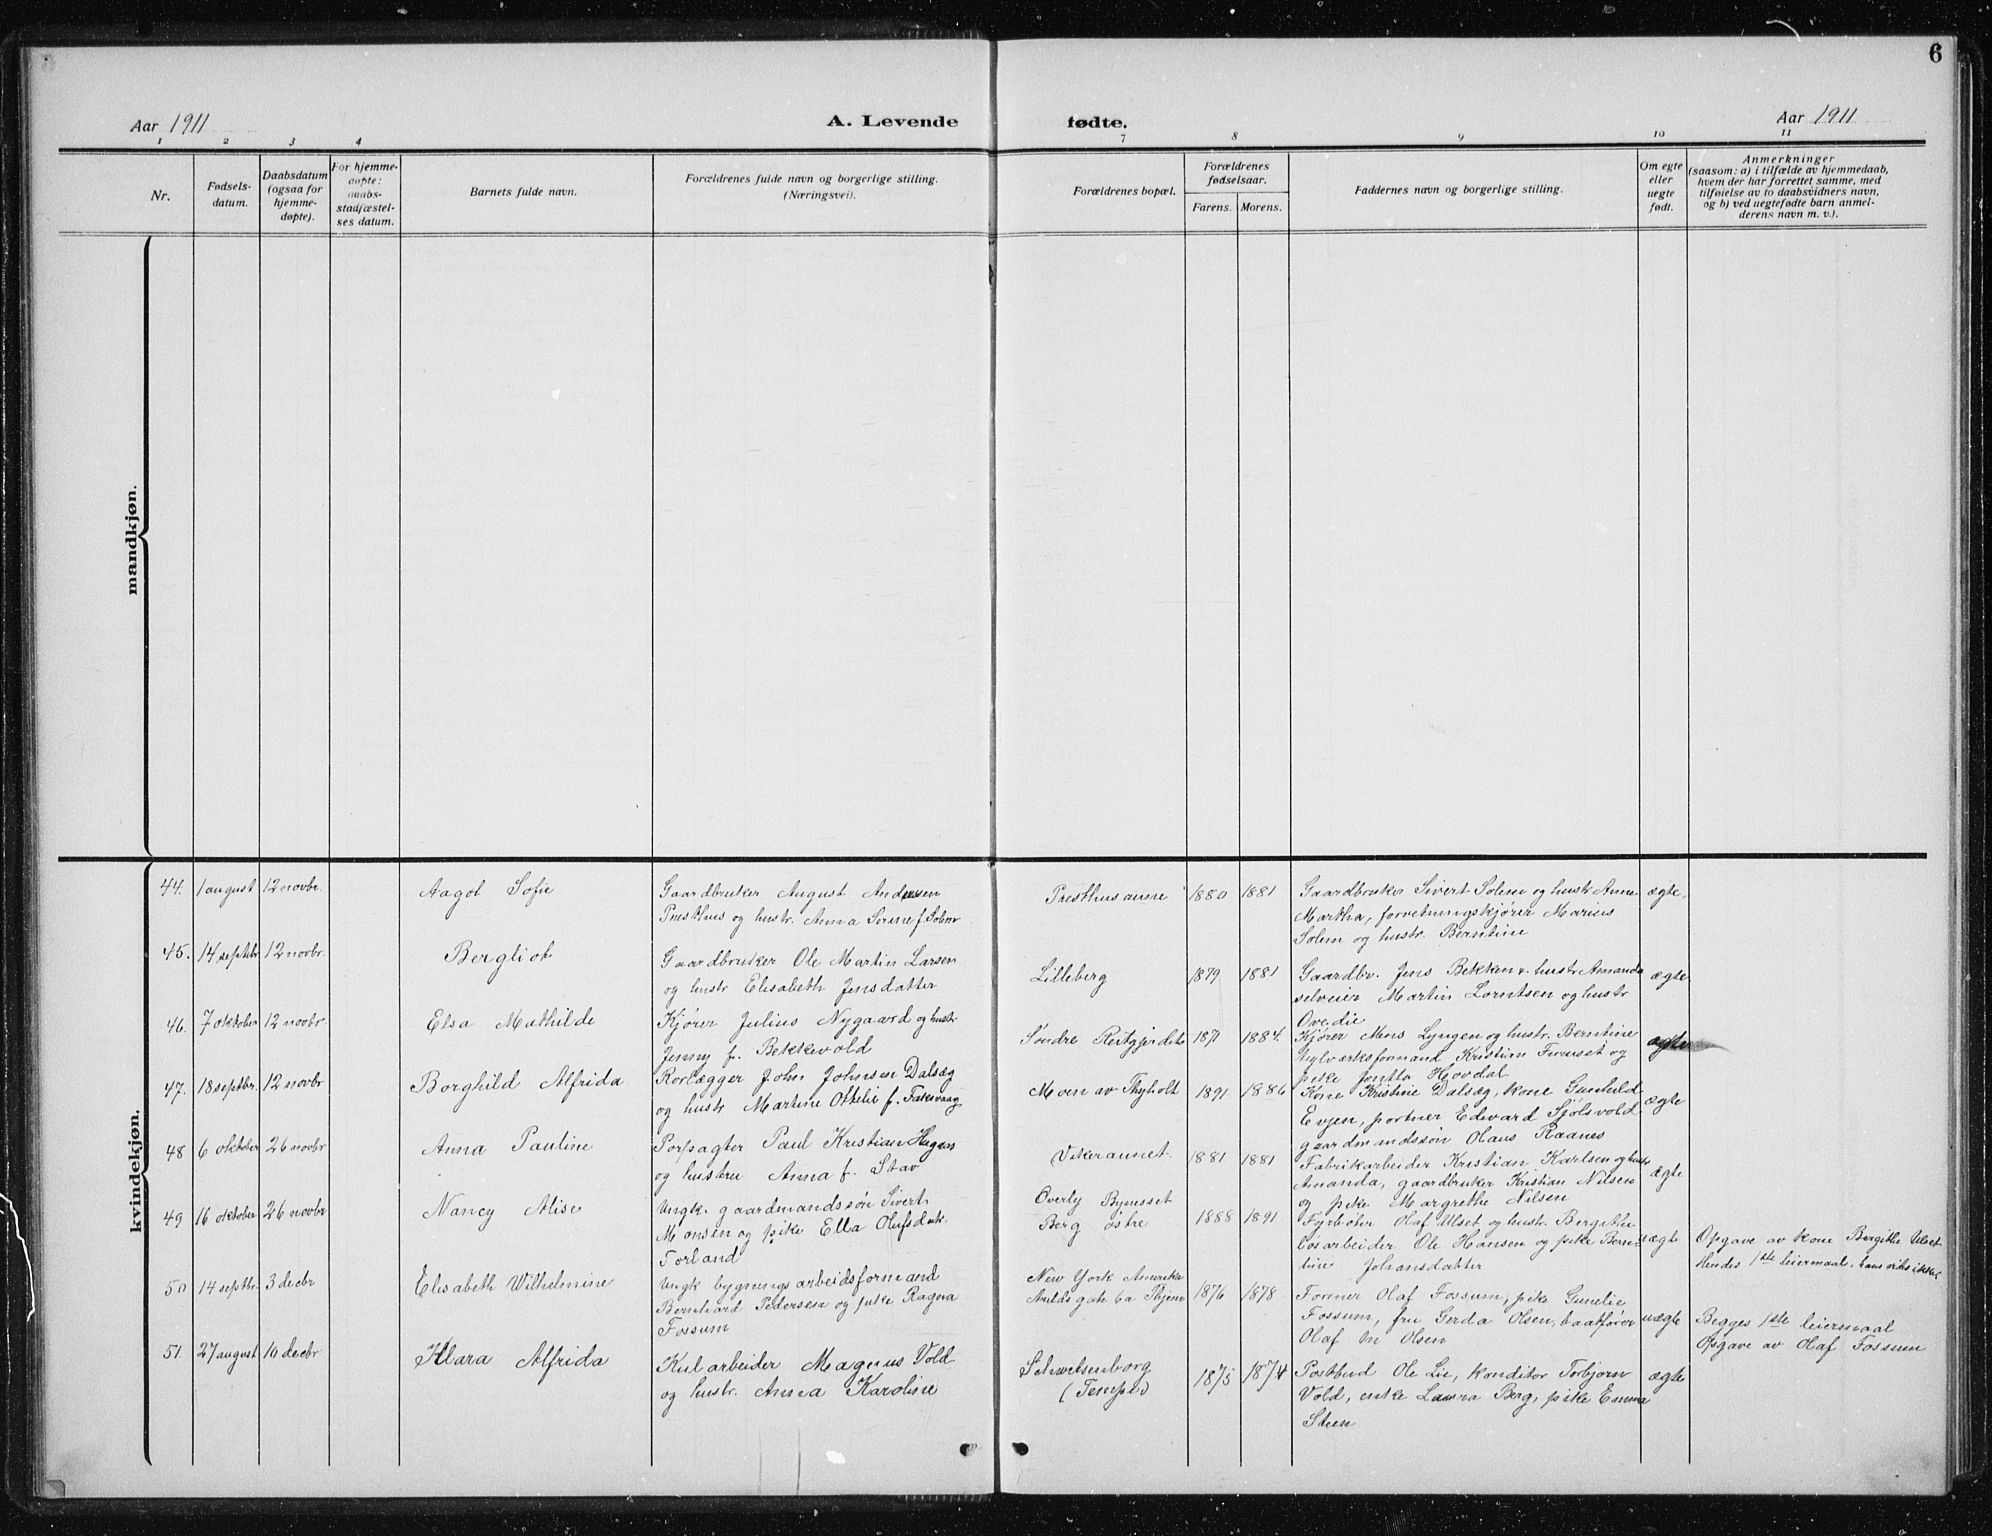 6
Aar 1911 A. Levende fødte. Aar 1911
1 2 3 4 7 8 9 10 11
Nr.
Fødsels-
datum.
Daabsdatum
(ogsaa for
hjemme-
døpte).
For hjemme-
døpte:
daabs-
stadfæstel-
ses datum.
Barnets fulde navn.
Forældrenes fulde navn og borgerlige stilling.
(Næringsvei).
Forældrenes bopæl.
Forældrenes
fødselsaar.
Farens. Morens.
Faddernes navn og borgerlige stilling.
Om egte
eller
uegte
født.
Anmerkninger
(saasom: a) i tilfælde av hjemmedaab,
hvem der har forrettet samme, med
tilføielse av to daabsvidners navn,
og b) ved uegtefødte barn anmel-
derens navn m. v.).
mandkjøn.
kvindekjøn.
44. 1 august 12 novbr. Aagot Sofie
Gaardbruker August Andersen
Presthus og hustr. Anna Sirine f. Solem
Presthusaune 1880 1881
Gaardbruker Sivert Solem og hustr. Anne
Martha, forretningskjører Marius
Solem og hustr. Berntine
ægte.
45. 14 septbr 12 novbr. Bergliot
Gaardbruker Ole Martin Larsen
og hustr Elisabeth Jensdatter
Lilleberg 1879 1881
Gaardbr. Jens Bekken & hustr. Amanda
selveier Martin Lorntsen og hustr
Ovedie
ægte
46. 7 oktober 12 novbr. Elsa Mathilde
Kjører Julius Nygaard og hustr.
Jenny f. Bekkevold
Søndre 1871 1884.
Kjører Mens Lyngen og hustr. Berntine
Kristian Furuset og
pike Jontta Hovdal
ægte
47. 18 septbr. 12 novbr Borghild Alfrida
Rorlægger John Johnsen Dalsæg
og hustr Martine Ottilie f. Faksvaag
Moen av Thyholt 1891 1886
Kone Kristine Dalsæg, kone Gunhild
Evjen, portner Edvard Sjølsvold
gaardmandssøn Olaus Raanes
ægte
48 6 oktober 26 novbr Anna Pauline
Forpagter Paul Kristian Hagen
og hustru Anna f. Stav
Vikeraunet. 1881 1881
Fabrikarbeider Kristian Karlsen og hustr
Amanda, gaardbruker Kristian Nilsen
og pike Margrethe Nilsen
ægte
49 16 oktober 26 novbr Nancy Alise
Ungk. gaardmandssøn Sivert
Monsen og pike Ella Olufsdatr.
Forland
Överly Bynesset
Berg østre
1888 1891
Fyrbøter Olaf Ulset og hustr. Bergitte
løsarbeider Ole Hansen og pike Bern-
tine Johansdatter
uægte
Opgave av kone Bergitte Ulset
Hendes 1ste leiermaal, hans vites ikke
50 14 septbr. 3 decbr Elisabeth Wilhelmine
Ungk bygningsarbeidsformand
Bernhard Pedersen og pike Ragna
Fossum
New York Amerika
1876 1878
Former Olaf Fossum, pike Gunelie
Fossum, fru Gerda Olsen, baatfører
Olaf M Olsen
uægte
Begges 1ste leiermaal
Opgave av Olaf Fossum
51. 27 august 10 decbr Klara Alfrida
Kularbeider Magnus Vold
og hustr. Anna Karoline
Schwetsenborg
(Tempe)
1875 1874
Postbud Ole Lie, konditor Torbjørn
Vold, enke Laura Berg, pike Emma
Steen
ægte